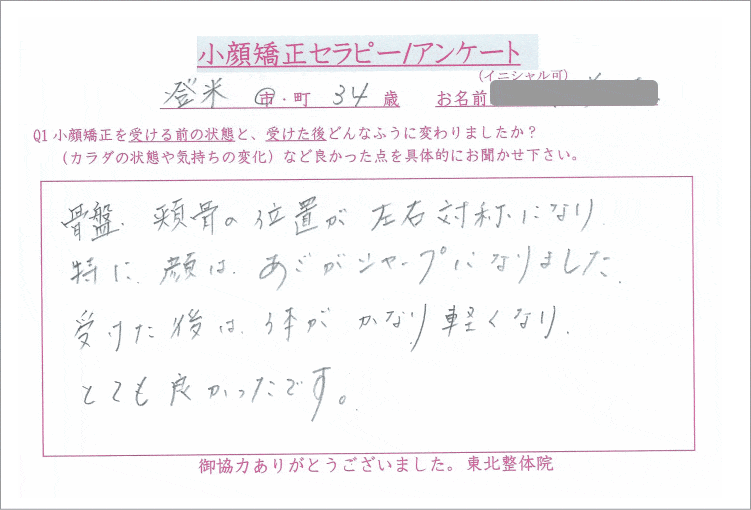 小顔矯正セラピー/アンケート
(イニシャル可)
登米 市・町 34 歳 お名前
Q1 小顔矯正を受ける前の状態と、受けた後どんなふうに変わりましたか？
（カラダの状態や気持ちの変化）など良かった点を具体的にお聞かせ下さい。
骨盤、頬骨の位置が左右対称になり
特に、顔は、あごがシャープになりました。
受けた後は、体がかなり軽くなり、
とても良かったです。
御協力ありがとうございました。東北整体院